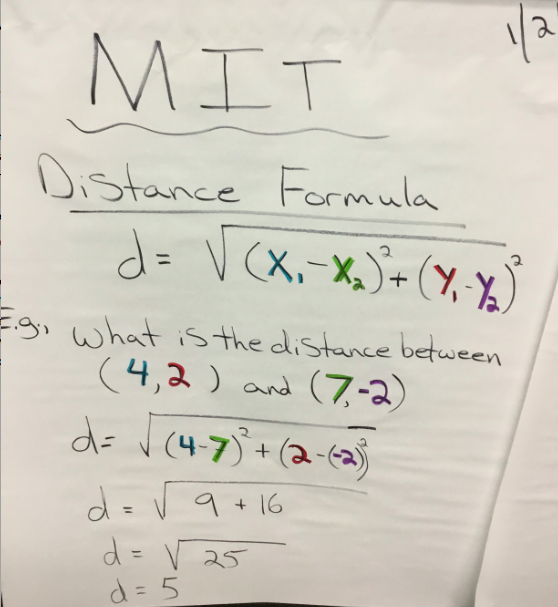 1/2
MIT
Distance Formula
d = √(x₁-x₂)² + (y₁-y₂)²
E.g., What is the distance between
(4,2) and (7,-2)
d= √(4-7)² + (2-(-2))²
d = √9 + 16
d = √25
d = 5